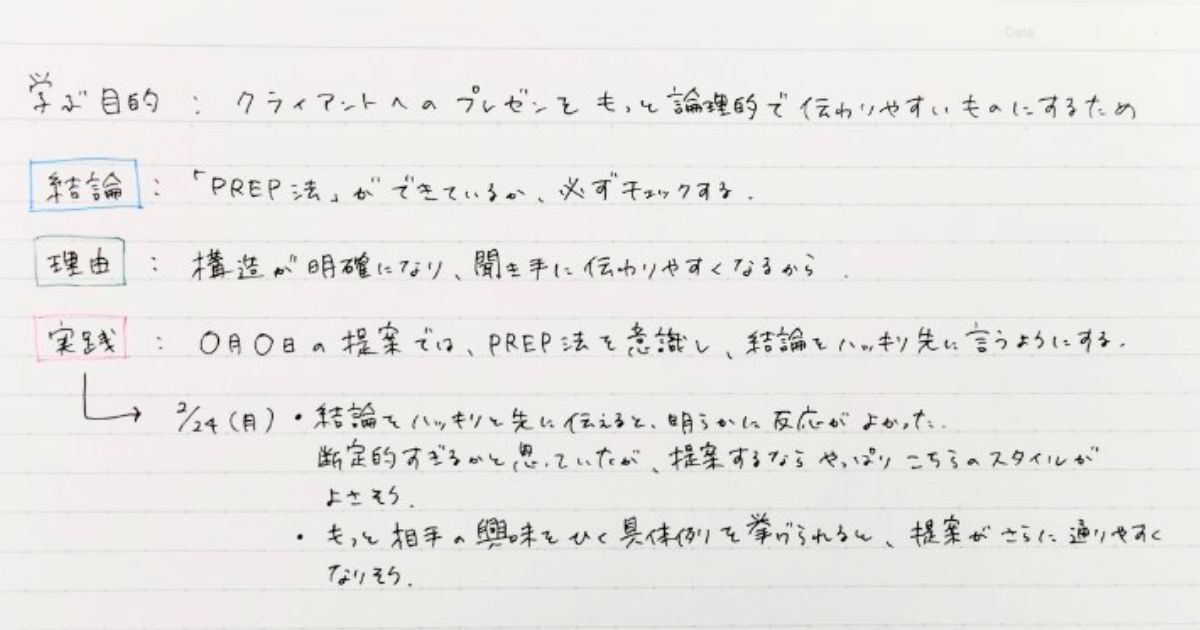 Date
学ぶ目的 : クライアントへのプレゼンをもっと論理的で伝わりやすいものにするため
結論 : 「PREP法」ができているか、必ずチェックする.
理由 : 構造が明確になり、聞き手に伝わりやすくなるから.
実践 : 〇月〇日の提案では、PREP法を意識し、結論をハッキリ先に言うようにする.
2/24(月)・結論をハッキリと先に伝えると、明らかに反応がよかった.
断定的すぎるかと思っていたが、提案するならやっぱりこちらのスタイルが
よさそう.
・もっと相手の興味をひく具体例を挙げられると、提案がさらに通りやすく
なりそう.